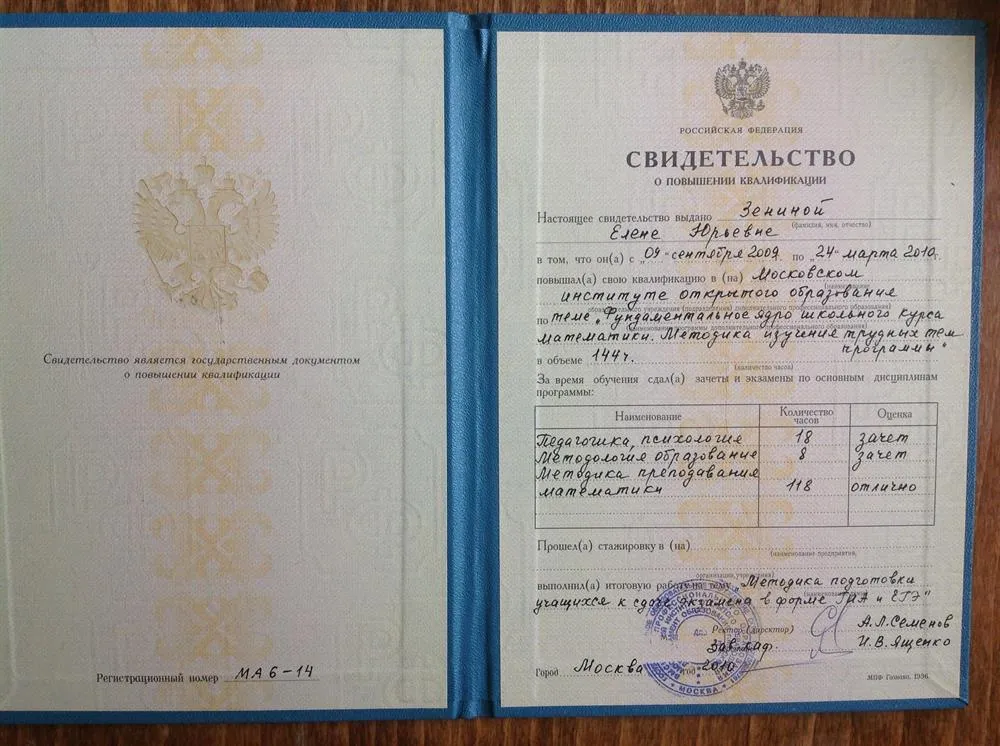 Свидетельство является государственным документом
о повышении квалификации
Регистрационный номер МА6-14
РОССИЙСКАЯ ФЕДЕРАЦИЯ
СВИДЕТЕЛЬСТВО
О ПОВЫШЕНИИ КВАЛИФИКАЦИИ
Настоящее свидетельство выдано Зениной
(фамилия, имя, отчество)
Елене Юрьевне
в том, что он(а) с „09" сентября 2009 по „24" марта 2010г.
повышал(а) свою квалификацию в (на) Московском
(наименование
институте открытого образования
образовательного учреждения (подразделения) дополнительного профессионального образования)
по теме „Фундаментальное ядро школьного курса
(наименование программы дополнительного профессионального образования)
математики. Методика изучения трудных тем
программы"
в объеме 144ч.
(количество часов)
За время обучения сдал(а) зачеты и экзамены по основным дисциплинам
программы:
Наименование Количество часов Оценка
Педагогика, психология 18 зачет
Методология образование 8 зачет
Методика преподавания
математики 118 отлично
Прошел(а) стажировку в (на)
(наименование предприятия,
организации, учреждения)
выполнил(а) итоговую работу на тему „Методика подготовки
учащихся к сдаче экзамена в форме ГИА и ЕГЭ"
Ректор (директор) А.Л.Семенов
Зав.каф. И.В.Ященко
Город Москва год 2010
МОСКВА
МПФ Гознака. 1996.